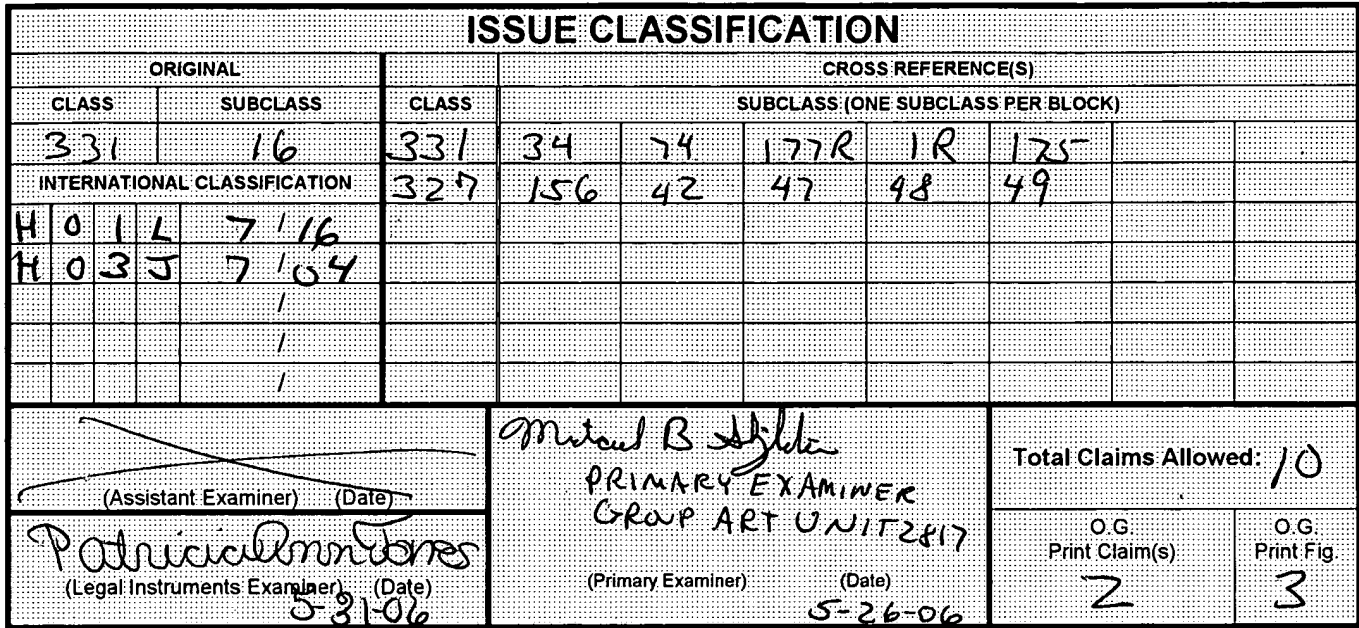 ISSUE CLASSIFICATION
ORIGINAL CROSS REFERENCE(S)
CLASS SUBCLASS CLASS SUBCLASS (ONE SUBCLASS PER BLOCK)
331 16 331 34 74 177R 1R 175
INTERNATIONAL CLASSIFICATION 327 156 42 47 48 49
H 0 1 L 7 / 16
H 0 3 J 7 / 04
/
/
/
(Assistant Examiner) (Date)
PatriciaAnnJones
(Legal Instruments Examiner) (Date)
5-31-06
B
PRIMARY EXAMINER
GROUP ART UNIT 2817
(Primary Examiner) (Date)
5-26-06
Total Claims Allowed: 10
O.G. Print Claim(s)
2
O.G. Print Fig.
3